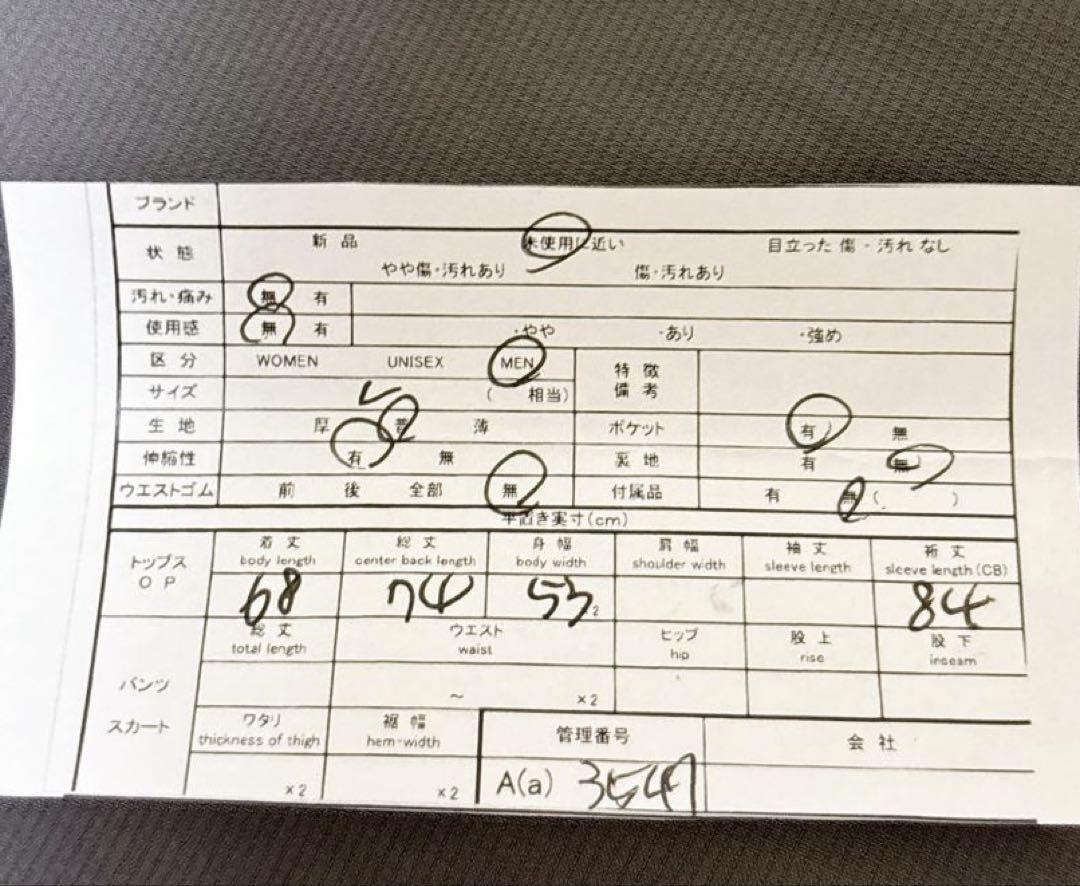 ブランド
状態 新品 未使用に近い 目立った傷・汚れなし
やや傷・汚れあり 傷・汚れあり
汚れ・痛み 無 有
使用感 無 有 ・やや ・あり ・強め
区分 WOMEN UNISEX MEN 特徴
備考
サイズ L ( 相当)
生地 厚 普 薄 ポケット 有 無
伸縮性 有 無 裏地 有 無
ウエストゴム 前 後 全部 無 付属品 有 無 ( )
平置き実寸(cm)
トップス
OP
着丈 総丈 身幅 肩幅 袖丈 裄丈
body length center back length body width shoulder width sleeve length sleeve length (CB)
68 74 53 2 84
パンツ
スカート
総丈 ウエスト ヒップ 股上 股下
total length waist hip rise inseam
～ ×2
ワタリ 裾幅 管理番号 会社
thickness of thigh hem-width
×2 ×2 A(a) 3547